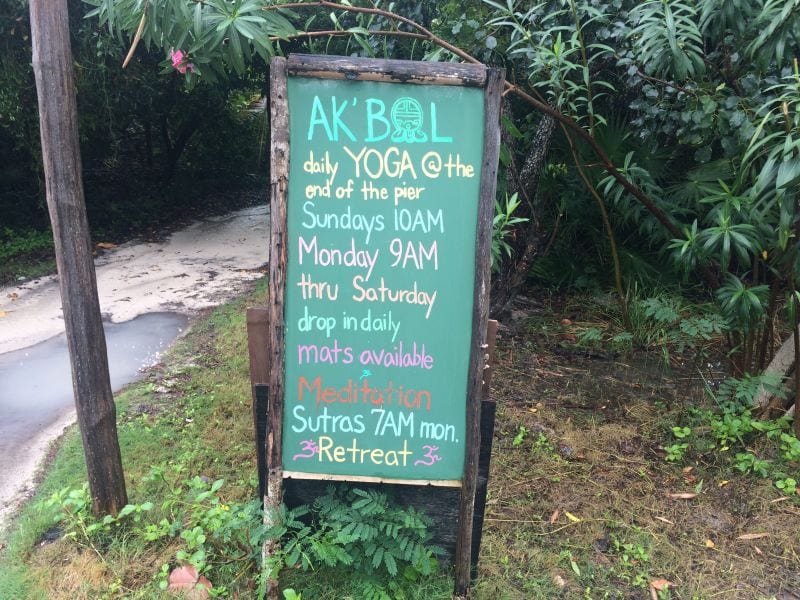 AK'BOL
daily YOGA @ the
end of the pier
Sundays 10AM
Monday 9AM
thru Saturday
drop in daily
mats available
Meditation
Sutras 7AM mon.
ॐ Retreat ॐ